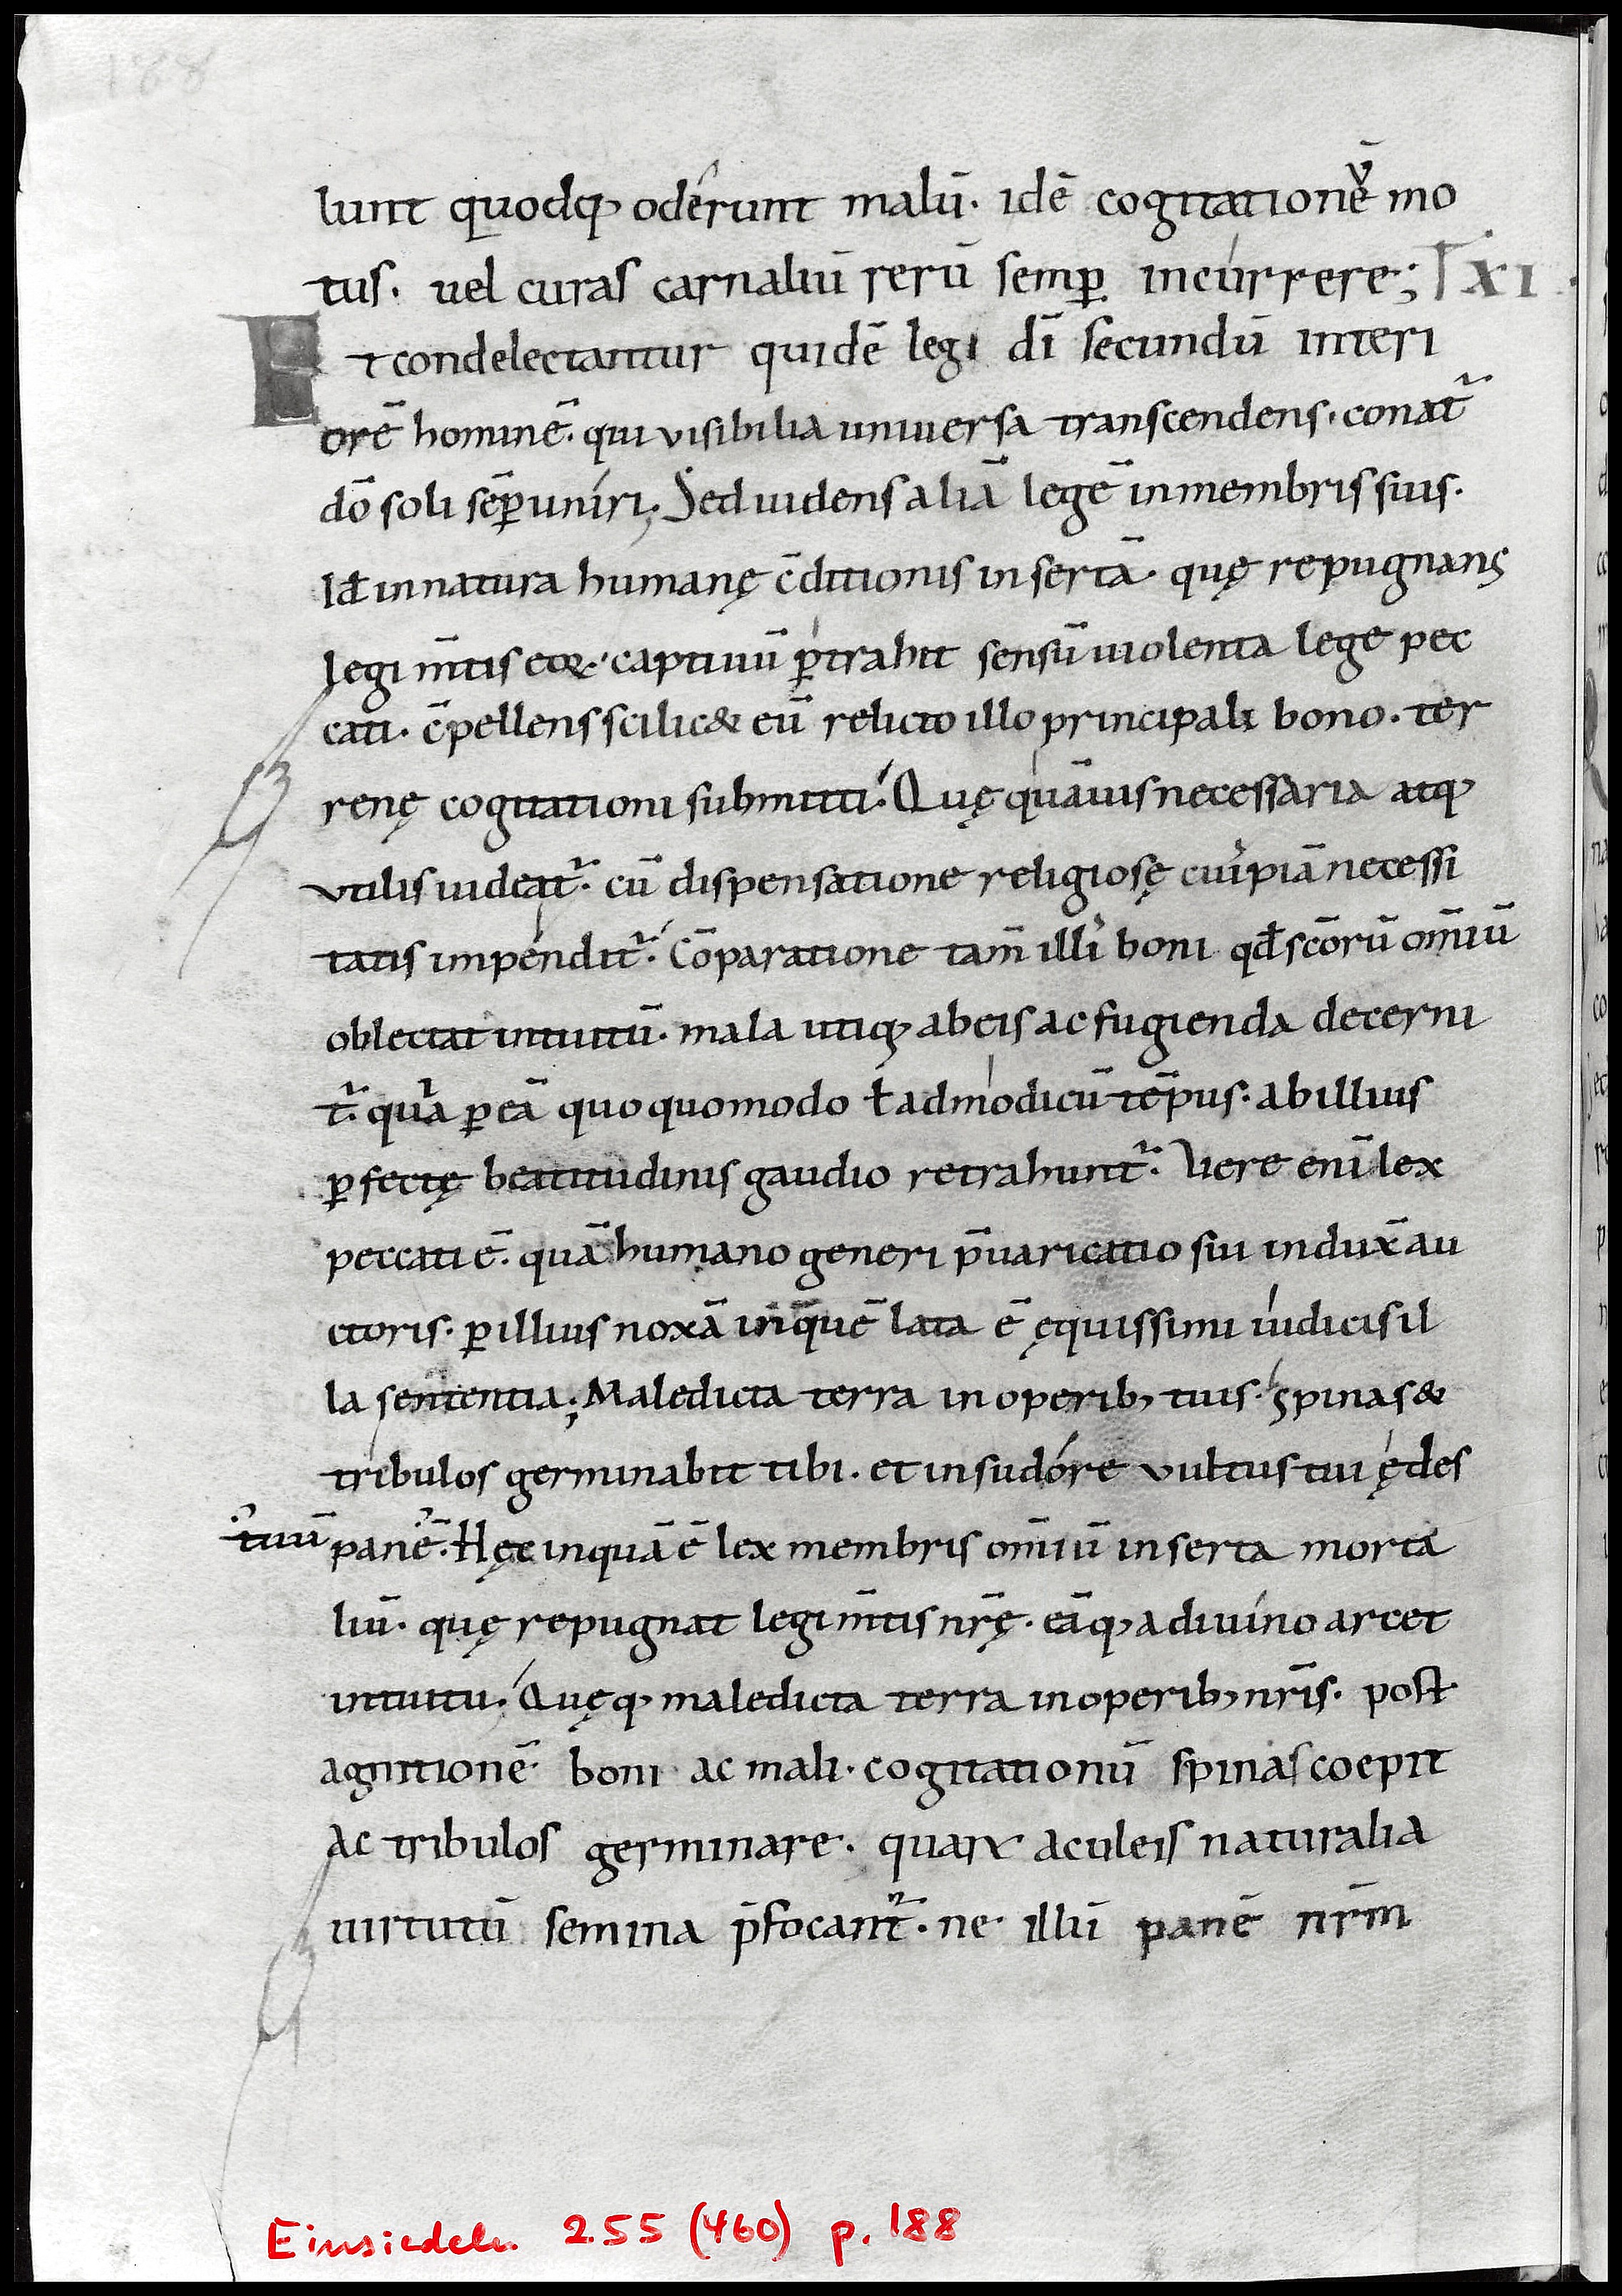 188
lunt quodq; oderunt malū. idē cogitationē mo
tus. uel curas carnaliū rerū semꝑ incurrere; XI
Et condelectantur quidē legi dī secundū interi
orē hominē. qui visibilia universa transcendens. conat̄
dō soli sēꝑ uniri; Sed uidens aliā legē in membris suis.
Id ÷ in natura humanę c̄ditionis insertā. quę repugnans
legi m̄tis eoꝝ. captiuū ꝑtrahit sensū violenta lege pec
cati. c̄pellens scilic& eū relicto illo principali bono. ter
renę cogitationi submitti. Quę quāuis necessaria atq;
vtilis uideat̄. cū dispensatione religiosę cuiuspiā necessi
tatis impendit̄. Cōparatione tam̄ illi boni qđ scōrū om̄iū
oblectat intuitū. mala utiq; ab eis ac fugienda decerni
t̄. quia ꝑ eā quoquomodo ł ad modicū tēpus. ab illius
ꝑfectę beatitudinis gaudio retrahunt̄. Uere enī lex
peccati ē. quā humano generi p̄uaricatio sui indux̄ au
ctoris. ꝑ illius noxā in quē lata ē ęquissimi iudicis il
la sententia; Maledicta terra in operib; tuis. spinas &
tribulos germinabit tibi. et in sudóre vultus tui ędes
tuū panē. Hęc inquā ē lex membris om̄iū inserta morta
liū. quę repugnat legi m̄tis nr̄ę. eāq; a divíno arcet
intuitu; Quęq; maledicta terra in operib; nr̄is. post
agnitionē boni ac mali. cogitationū spinas coepit
ac tribulos germinare. quaꝝ aculeis naturalia
uirtutū semina p̄focant̄. ne illū panē nr̄m
Einsiedeln 255 (460) p. 188